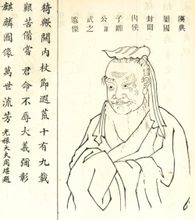 漢典
屬國
封關
內侯
子卿
公諱
武之
遺像
猗歟關內杖節遐荒十有九載
艱苦備嘗君命不辱大義彌彰
麒麟圖像萬世流芳 光祿大夫周堪題